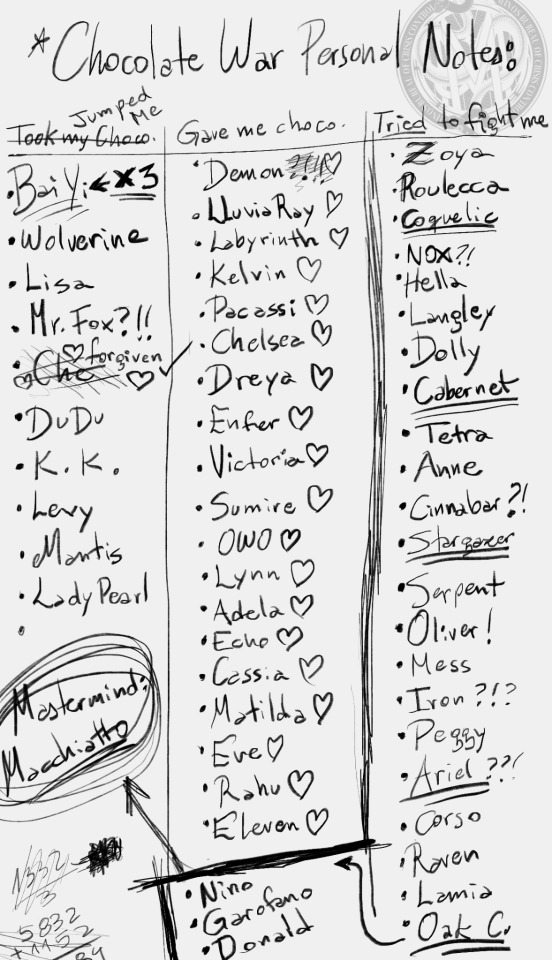 *Chocolate War Personal Notes:
Took my Choco.
Jumped Me
• Bai Yi ← x3
• Wolverine
• Lisa
• Mr. Fox?!!
• Che ♡ forgiven ♡ ✓
• DuDu
• K.K.
• Levy
• Mantis
• Lady Pearl
•
Mastermind:
Macchiatto
5832
+1152
Gave me choco.
• Demon ?!! ♡
• LluviaRay ♡
• Labyrinth ♡
• Kelvin ♡
• Pacassi ♡
• Chelsea ♡
• Dreya ♡
• Enfer ♡
• Victoria ♡
• Sumire ♡
• OWO ♡
• Lynn ♡
• Adela ♡
• Echo ♡
• Cassia ♡
• Matilda ♡
• Eve ♡
• Rahu ♡
• Eleven ♡
• Nino
• Garofano
• Donald
Tried to fight me
• Zoya
• Roulecca
• Coquelic
• NOX?!
• Hella
• Langley
• Dolly
• Cabernet
• Tetra
• Anne
• Cinnabar?!
• Stargazer
• Serpent
• Oliver!
• Mess
• Iron ?!?
• Peggy
• Ariel ??!
• Corso
• Raven
• Lamia
• Oak C.